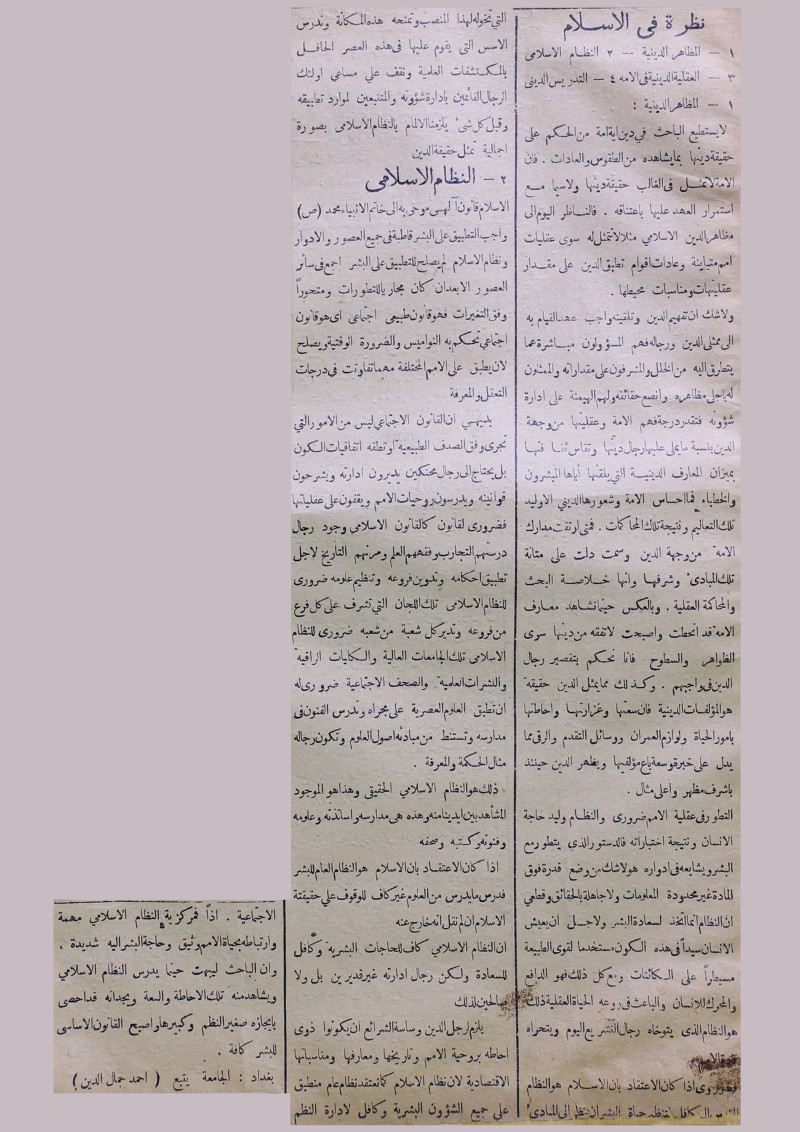 نظرة في الاسلام
١ — المظاهر الدينية — ٢ النظام الاسلامى
٣ — العقلية الدينية فى الامه ٤ — التدريس الدينى
١ — المظاهر الدينية :
لايستطيع الباحث في دين اية امة من الحكم على
حقيقة دينها بمايشاهده من الطقوس والعادات . فان
الامة لاتمثل فى الغالب حقيقة دينها ولاسيما مع
استمرار العهد عليها باعتناقه . فالناظر اليوم الى
مظاهر الدين الاسلامي مثلا لاتتمثل له سوى عقليات
امم متباينة وعادات اقوام تطبق الدين على مقدار
عقليتها ومناسبات محيطها .
ولاشك ان تفهيم الدين وتلقينه واجب عهد القيام به
الى ممثلى الدين ورجاله فهم المسؤولون مباشرة عما
يتطرق اليه من الخلل والمشرفون على مقدراته والممثلون
له باجلى مظاهره وانصع حقائقه ولهم الهيمنة على ادارة
شؤونه فتقدر درجة فهم الامة وعقليتها من وجهة
الدين بنسبة مايملى عليها رجال دينها وتقاس ثقافتها
بميزان المعارف الدينية التي يلقنها أياها المبشرون
والخطباء فما احساس الامة وشعورها الديني الاوليد
تلك التعاليم ونتيجة تلك المحاكمات . فمتى ارتقت مدارك
الامة من وجهة الدين وسمت دلت على متانة
تلك المبادئ وشرفها وانها خلاصة البحث
والمحاكمة العقلية . وبالعكس حينما نشاهد معارف
الامة قد انحطت واصبحت لاتفقه من دينها سوى
الظواهر والسطوح فانا نحكم بتقصير رجال
الدين فى واجبهم . وكذلك مما يمثل الدين حقيقة
هو المؤلفات الدينية فان سعتها وغزارتها واحاطتها
بامور الحياة ولوازم العمران ووسائل التقدم والرقى مما
يدل على خبرة وسعة باع مؤلفيها ويظهر الدين حينئذ
باشرف مظهر واعلى مثال .
التطور فى عقلية الامم ضرورى والنظام وليد حاجة
الانسان ونتيجة اختباراته فالدستور الذى يتطور مع
البشر ويشايعه فى ادواره هو لاشك من وضع قدرة فوق
المادة غير محدودة المعلومات ولا جاهلة بالحقائق وقطعي
ان النظام انما اتخذ لسعادة البشر ولاجل ان يعيش
الانسان سيداً فى هذه الكون مستخدما لقوى الطبيعة
مسيطراً على الكائنات ومع كل ذلك فهو الدافع
والمحرك للانسان والباعث فى روعه الحياة العقلية ذلك
هو النظام الذى يتوخاه رجال التشريع اليوم ويتحراه
اذا كان الاعتقاد بان الاسلام هو النظام
الكافل لتنظيم حياة البشر ان ننظر الى المبادئ
التي تخوله لهذا المنصب وتمنحه هذه المكانة وندرس
الاسس التى يقوم عليها فى هذه العصر الحافل
بالمكتشفات العلمية ونقف علي مساعي اولئك
الرجال القائمين بادارة شؤونه والمتتبعين لموارد تطبيقه
وقبل كل شئ يلزمنا الالمام بالنظام الاسلامى بصورة
اجمالية تمثل حقيقة الدين
٢ — النظام الاسلامى
الاسلام قانون آلهى موحى به الى خاتم الانبياء محمد (ص)
واجب التطبيق على البشر قاطبة فى جميع العصور والادوار
ونظام الاسلام لم يصلح للتطبيق على البشر اجمع فى سائر
العصور الابعد ان كان مجاريا للتطورات ومتحوراً
وفق التغيرات فهو قانون طبيعى اجتماعى اى هو قانون
اجتماعي تحكم به النواميس والضرورة الوقتية ويصلح
لان يطبق على الامم المختلفة مهما تفاوتت فى درجات
التعقل والمعرفة
بديهي ان القانون الاجتماعي ليس من الامور التي
تجرى وفق الصدف الطبيعية او تطلقه اتفاقيات الكون
بل يحتاج الى رجال محنكين يديرون ادارته ويشرحون
قوانينه ويدرسون روحيات الامم ويقفون على عقلياتها
فضرورى لقانون كالقانون الاسلامى وجود رجال
درستهم التجارب وفقههم العلم ومرنهم التاريخ لاجل
تطبيق احكامه وتدوين فروعه وتنظيم علومه ضرورى
للنظام الاسلامى تلك اللجان التي تشرف على كل فرع
من فروعه وتدير كل شعبة من شعبه ضرورى للنظام
الاسلامى تلك الجامعات العالية والكليات الراقية
والنشرات العلمية والصحف الاجتماعية ضرورى له
ان تطبق العلوم العصرية على مجراه وتدرس الفنون فى
مدارسه وتستنط من مبادئه اصول العلوم وتكون رجاله
مثال الحكمة والمعرفة .
ذلك هو النظام الاسلامي الحقيقى وهذا هو الموجود
المشاهد بين ايدينا منه وهذه هى مدارسه واساتذته وعلومه
وفنونه وكتبه وصحفه
اذا كان الاعتقاد بان الاسلام هو النظام العام للبشر
فدرس مايدرس من العلوم غير كاف للوقوف علي حقيقتة
الاسلام ان لم نقل انه خارج عنه
ان النظام الاسلامى كاف للحاجات البشرية وكافل
للسعادة ولكن رجال ادارته غير قديرين بل ولا
صالحين لذلك
يلزم لرجل الدين وساسة الشرائع ان يكونوا ذوى
احاطه بروحية الامم وتاريخها ومعارفها ومناسباتها
الاقتصادية لان نظام الاسلام كما نعتقد نظام عام منطبق
على جميع الشؤون البشرية وكافل لادارة النظم
الاجتماعية . اذاً فمركزية النظام الاسلامي مهمة
وارتباطه بحياة الامم وثيق وحاجة البشر اليه شديدة .
وان الباحث ليبهت حينما يدرس النظام الاسلامي
ويشاهد منه تلك الاحاطة والسعة ويجد انه قد احصى
بايجازه صغير النظم وكبيرها واصبح القانون الاساسى
للبشر كافة .
بغداد : الجامعة يتبع ( احمد جمال الدين )